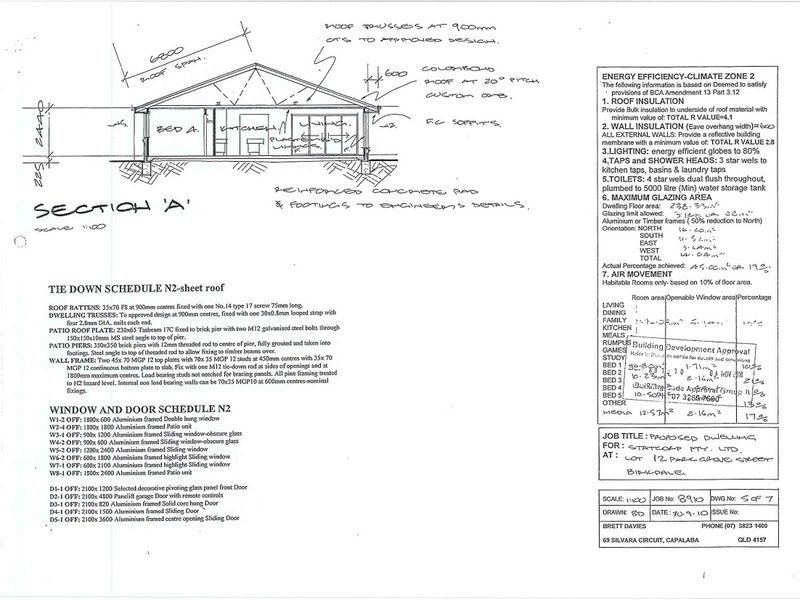 ROOF TRUSSES AT 900mm
CTS TO APPROVED DESIGN.
6800
ROOF SPAN.
600
COLORBOND
ROOF AT 20° PITCH
CUSTOM ORB.
F.C. SOFFITS.
BED 2.
KITCHEN
LIVING.
2440
225
REINFORCED CONCRETE PAD
& FOOTINGS TO ENGINEER'S DETAILS.
SECTION 'A'
SCALE 1:100
TIE DOWN SCHEDULE N2-sheet roof
ROOF BATTENS: 35x70 F8 at 900mm centres fixed with one No.14 type 17 screw 75mm long.
DWELLING TRUSSES: To approved design at 900mm centres, fixed with one 30x0.8mm looped strap with
four 2.8mm DIA. nails each end.
PATIO ROOF PLATE: 230x65 Tasbeam 17C fixed to brick pier with two M12 galvanised steel bolts through
150x150x10mm MS steel angle to top of pier.
PATIO PIERS: 350x350 brick piers with 12mm threaded rod to centre of pier, fully grouted and taken into
footings. Steel angle to top of threaded rod to allow fixing to timber beams over.
WALL FRAME: Two 45x 70 MGP 12 top plates with 70x 35 MGP 12 studs at 450mm centres with 35x 70
MGP 12 continuous bottom plate to slab. Fix with one M12 tie-down rod at sides of openings and at
1800mm maximum centres. Load bearing studs not notched for bracing panels. All pine framing treated
to H2 hazard level. Internal non load bearing walls can be 70x35 MGP10 at 600mm centres-nominal
fixings.
WINDOW AND DOOR SCHEDULE N2
W1-2 OFF: 1800x 600 Aluminium framed Double hung window
W2-4 OFF: 1800x 1800 Aluminium framed Patio unit
W3-1 OFF: 900x 1200 Aluminium framed Sliding window-obscure glass
W4-2 OFF: 900x 600 Aluminium framed Sliding window-obscure glass
W5-2 OFF: 1200x 2400 Aluminium framed Sliding window
W6-2 OFF: 600x 1800 Aluminium framed highlight Sliding window
W7-1 OFF: 600x 2100 Aluminium framed highlight Sliding window
W8-1 OFF: 1800x 2400 Aluminium framed Patio unit
D1-1 OFF: 2100x 1200 Selected decorative pivoting glass panel front Door
D2-1 OFF: 2100x 4800 Panelift garage Door with remote controls
D3-1 OFF: 2100x 820 Aluminium framed Solid core hung Door
D4-1 OFF: 2100x 1500 Aluminium framed Sliding Door
D5-1 OFF: 2100x 3600 Aluminium framed centre opening Sliding Door
ENERGY EFFICIENCY-CLIMATE ZONE 2
The following information is based on Deemed to satisfy
provisions of BCA Amendment 13 Part 3.12
1. ROOF INSULATION
Provide Bulk insulation to underside of roof material with
minimum value of: TOTAL R VALUE=4.1
2. WALL INSULATION (Eave overhang width)=600
ALL EXTERNAL WALLS: Provide a reflective building
membrane with a minimum value of: TOTAL R VALUE 2.8
3.LIGHTING: energy efficient globes to 80%
4,TAPS and SHOWER HEADS: 3 star wels to
kitchen taps, basins & laundry taps
5.TOILETS: 4 star wels dual flush throughout,
plumbed to 5000 litre (Min) water storage tank
6. MAXIMUM GLAZING AREA
Dwelling Floor area: 238.33m²
Glazing limit allowed:
Aluminium or Timber frames ( 50% reduction to North)
Orientation: NORTH
SOUTH
EAST
WEST
TOTAL
Actual Percentage achieved: 45.00m² OR 19%
7. AIR MOVEMENT
Habitable Rooms only- based on 10% of floor area.
Room area Openable Window area Percentage
LIVING
DINING
FAMILY
KITCHEN
MEALS
RUMPUS
GAMES
STUDY
BED 1 1.71m²
BED 2
BED 3 10.23m² 2.16m²
BED 4
BED 5 10.50m²
OTHER
MEDIA 12.57m² 2.16m² 17%
Building Development Approval
Building Code Approval Group
07 3280 7660
JOB TITLE: PROPOSED DWELLING
FOR: STATCORP PTY. LTD.
AT: LOT 12 PARK GROVE STREET
BIRKDALE.
SCALE: 1:100 JOB No: 8910 DWG No: 5 OF 7
DRAWN: BD DATE: 20-9-10 ISSUE No:
BRETT DAVIES PHONE (07) 3823 1400
69 SILVARA CIRCUIT, CAPALABA QLD 4157